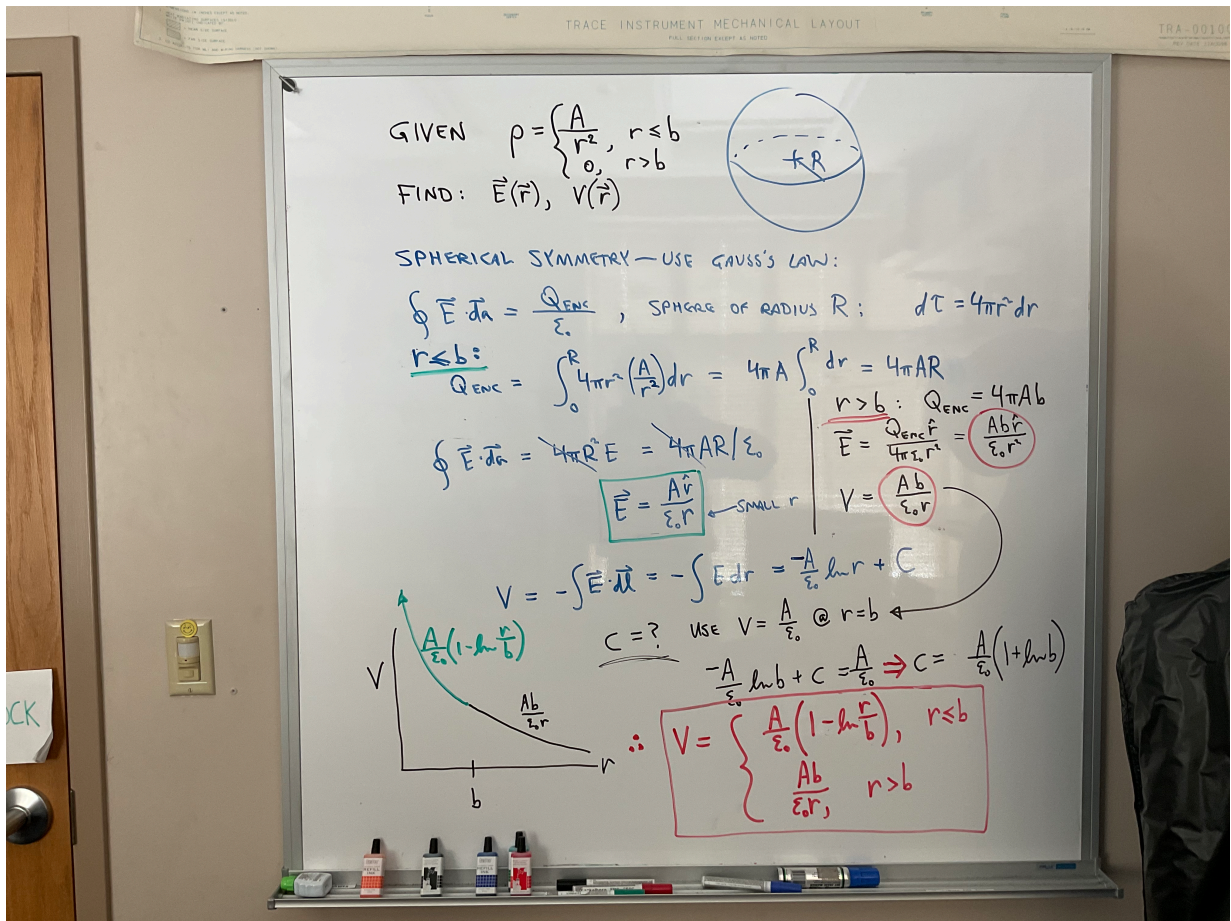 TRACE INSTRUMENT MECHANICAL LAYOUT
FULL SECTION EXCEPT AS NOTED
TRA-00100
GIVEN ρ = { A/r², r ≤ b
0, r > b
FIND: E⃗(r⃗), V(r⃗)
R
SPHERICAL SYMMETRY — USE GAUSS'S LAW:
∮ E⃗·da⃗ = Q_ENC/ε₀, SPHERE OF RADIUS R: dτ = 4πr²dr
r ≤ b:
Q_ENC = ∫₀ᴿ 4πr² (A/r²) dr = 4πA ∫₀ᴿ dr = 4πAR
∮ E⃗·da⃗ = 4πR²E = 4πAR/ε₀
E⃗ = Ar̂/ε₀r ← SMALL r
r > b: Q_ENC = 4πAb
E⃗ = Q_ENC r̂/4πε₀r² = Abr̂/ε₀r²
V = Ab/ε₀r
V = -∫E⃗·dl⃗ = -∫E dr = -A/ε₀ ln r + C
C = ? USE V = A/ε₀ @ r = b
-A/ε₀ ln b + C = A/ε₀ ⇒ C = A/ε₀ (1 + ln b)
∴ V = { A/ε₀ (1 - ln r/b), r ≤ b
Ab/ε₀r, r > b
A/ε₀ (1 - ln r/b)
V
Ab/ε₀r
r
b
CK